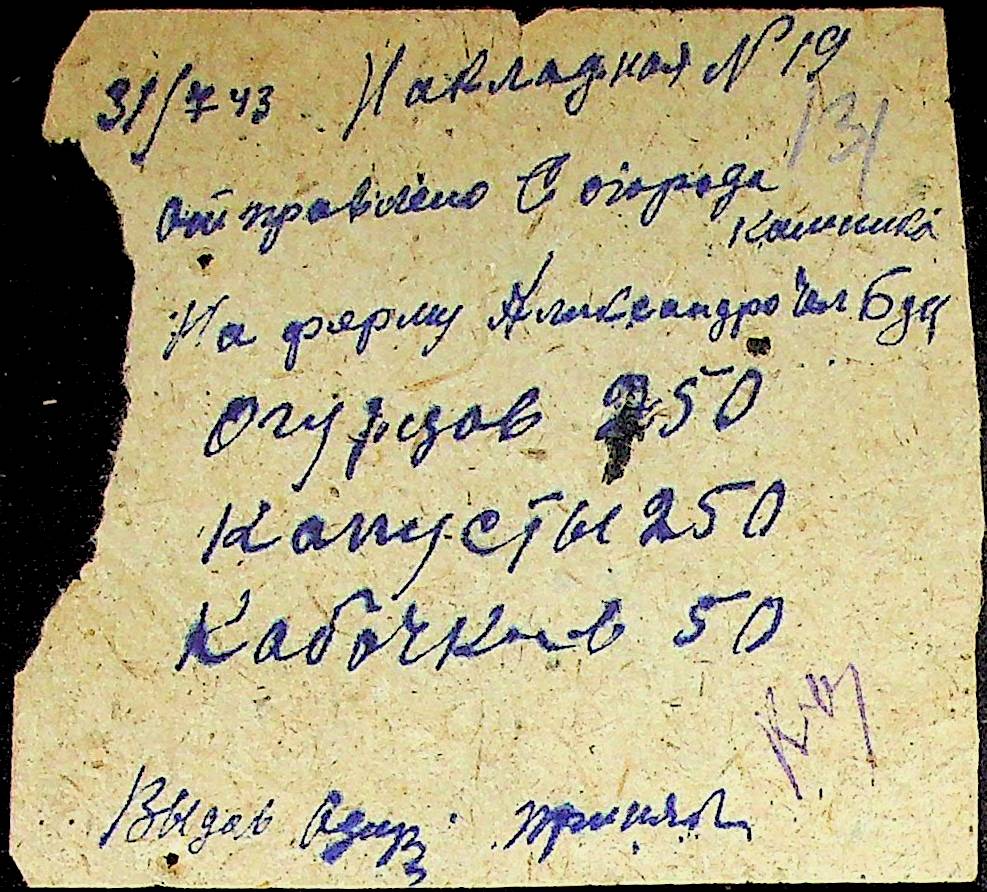 31/7 43 Накладная № 19
31
отправлено С огорода
Калиника
На ферму Александро
Огурцов 250
Капусты 250
Кабочков 50
Выдав принял